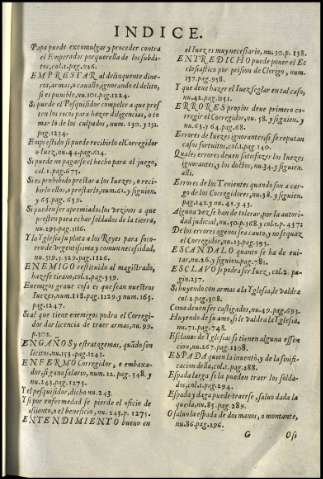 INDICE.
Papa puede excomulgar y proceder contra
el Emperador por querella de los subdi-
tos, col.2.pag.626.
EMPRESTAR al delinquente dine-
ros, armas, o cauallo, ignorando el delito,
si es punible, nu.101.pag.1224.
Si puede el Pesquisidor compeler a que pres
ten los reos para hazer diligencias, o to-
mar lo de los culpados, num. 130. y 131.
pag.1234.
Emprestido si puede recibirlo el Corregidor
o Iuez, nu.44.pag.614.
Si puede mpagarse el hecho para el juego,
col.1.pag.671.
Si es prohibido prestar a los Iuezes, o reci-
birlo ellos, o prestarlo, num.61. y siguien.
y 65.pag.630.
Si pueden ser apremiados los vezinos a que
presten para echar soldados de la tierra,
nu.295.pag.1186.
Y la Yglesia su plata a los Reyes para soco-
rro de vrgentissima y comun necessidad,
nu.319. y 329.pag.1126.
ENEMIGO restituido al magistrado,
haze se tirano, col.2.pag.339.
Enemigos graue cosa es que sean nuestros
Iuezes, num.118.pag.1129. y num.165.
pag.1247.
Si al que tiene enemigos podra el Corregi-
dor dar licencia de traer armas, nu.99.
pag.102.
ENGAÑOS y estratagemas, quādo son
licitos, nu.151.pag.1243.
ENFERMO Corregidor, o embaxa-
dor, si gana salarios, num.12.pag.348. y
nu.243.pag.1273.
Y el pesquisidor, dicho nu.243.
Y si por enfermedad se pierde el oficio de
assiento, o el beneficio, nu. 243.p.1273.
ENTENDIMIENTO bueno en
el Iuez es muy necessario, nu.30.p. 138.
ENTREDICHO puede poner el Ec
clesiastico por prision de Clerigo, num.
157.pag.958.
Y que deue hazer el Iuez seglar en tal caso,
nu.42.pag.931.
ERRORES propios deue primero co-
rregir el Corregidor, nu. 58. y siguien. y
nu.63. y 64.pag.68.
Errores de Iuezes ignorantes si se reputan
casos fortuitos, col.2.pag.140.
Quales errores deuen satisfazer los Iuezes
ignorantes, y los doctos, nu.34. y siguien.
alli.
Errores de los Tenientes quando son a car-
go de los Corregidores, nu.38. y siguien.
pag.142. y nu.42. y 43.
Alguna vez se han de tolerar, por la autori-
dad judicial, nu.50.p.368. y col.3.p. 4572
De los errores agenos sea cauto, y no se quaxz
el Corregidor, nu.13.pag.393.
ESCANDALO quanto se ha de eui-
tar, nu.26. y siguien.pag.781.
ESCLAVO si podra ser Iuez, col.2. pa-
gin.127.
Si huyendo sin armas a la Yglesia, le valdra
col.2.pag.308.
Como deuen ser castigados, nu.49.pag.693.
Huyendo de su amo, si le valdra la Yglesia,
nu.71.pag.748.
Esclauos de Yglesias si tienen alguna essen
cion, nu.267.pag.1208.
ESPADA quien la inuentò, y de la signifi-
cacion della, col.2.pag.288.
Espada larga si la pueden traer los solda-
dos, col.2.pag.294.
Espada y daga puede traerse, saluo dada la
queda, nu.85.pag.289.
O saluo la espada de dos manos, o montante,
nu.86.pag.296.
G
O si